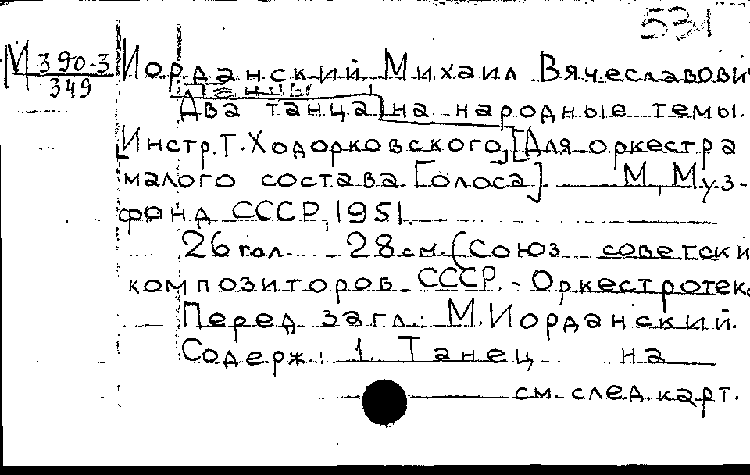 531
М 390-3
349
Иорданский Михаил Вячеславови
Танцы
Два танца] на народные темы.
[Инстр. Т. Ходорковского, [Для оркестра
малого состава. [Голоса]. М., Муз-
фонд СССР, 1951.
26 гол. 28 см. (Союз советски
композиторов СССР. - Оркестротек
Перед загл.: М. Иорданский.
Содерж.: 1. Танец на
см. след. карт.